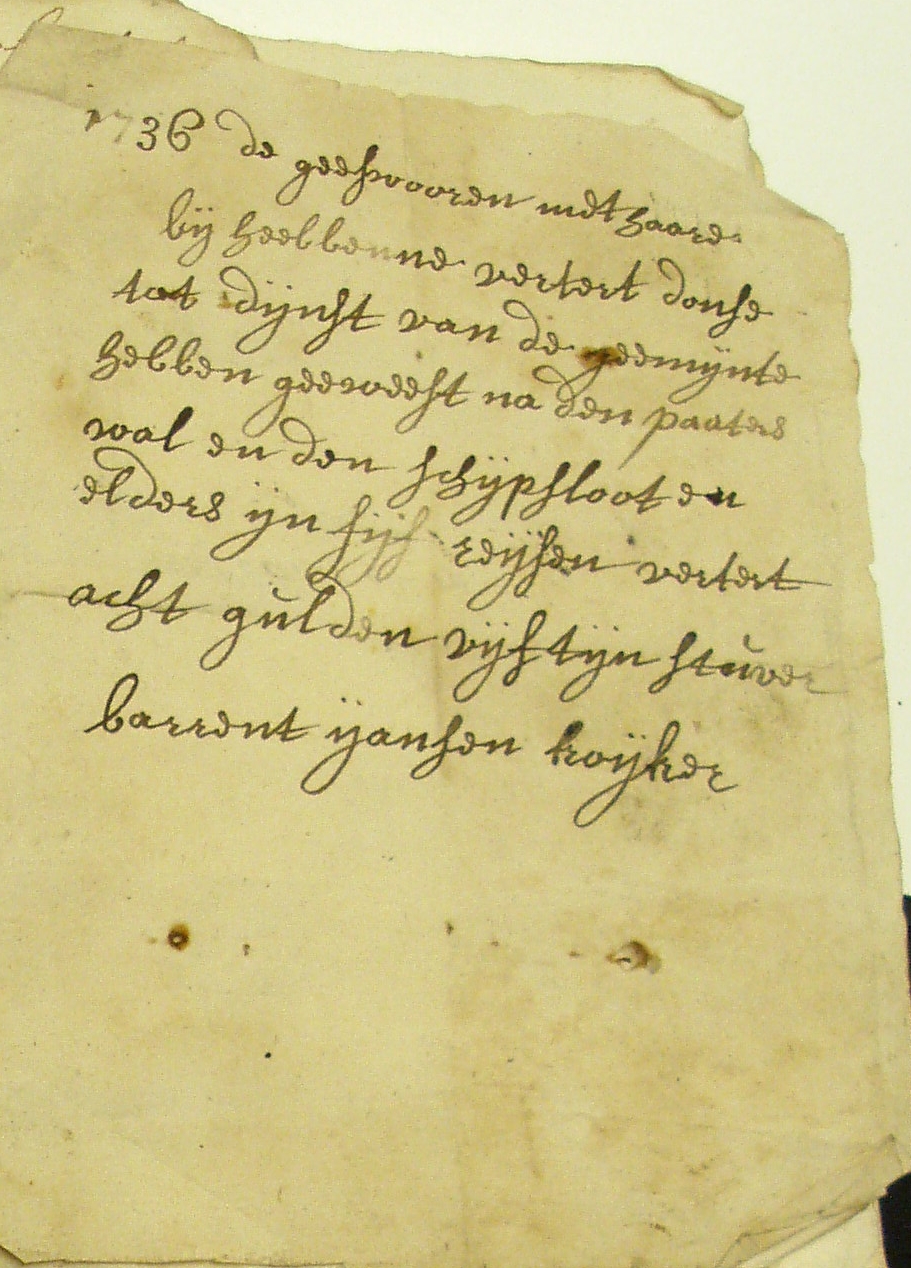 1736 de geeswooren met haare
bij heebbenne vertert donse
tot dijnst van de geemijnte
hebben geeweest na den paaters
wal en den schijpsloot en
elders ijn fijf reijsen vertert
acht gulden vijftijn stuver
barrent ijansen kroijker